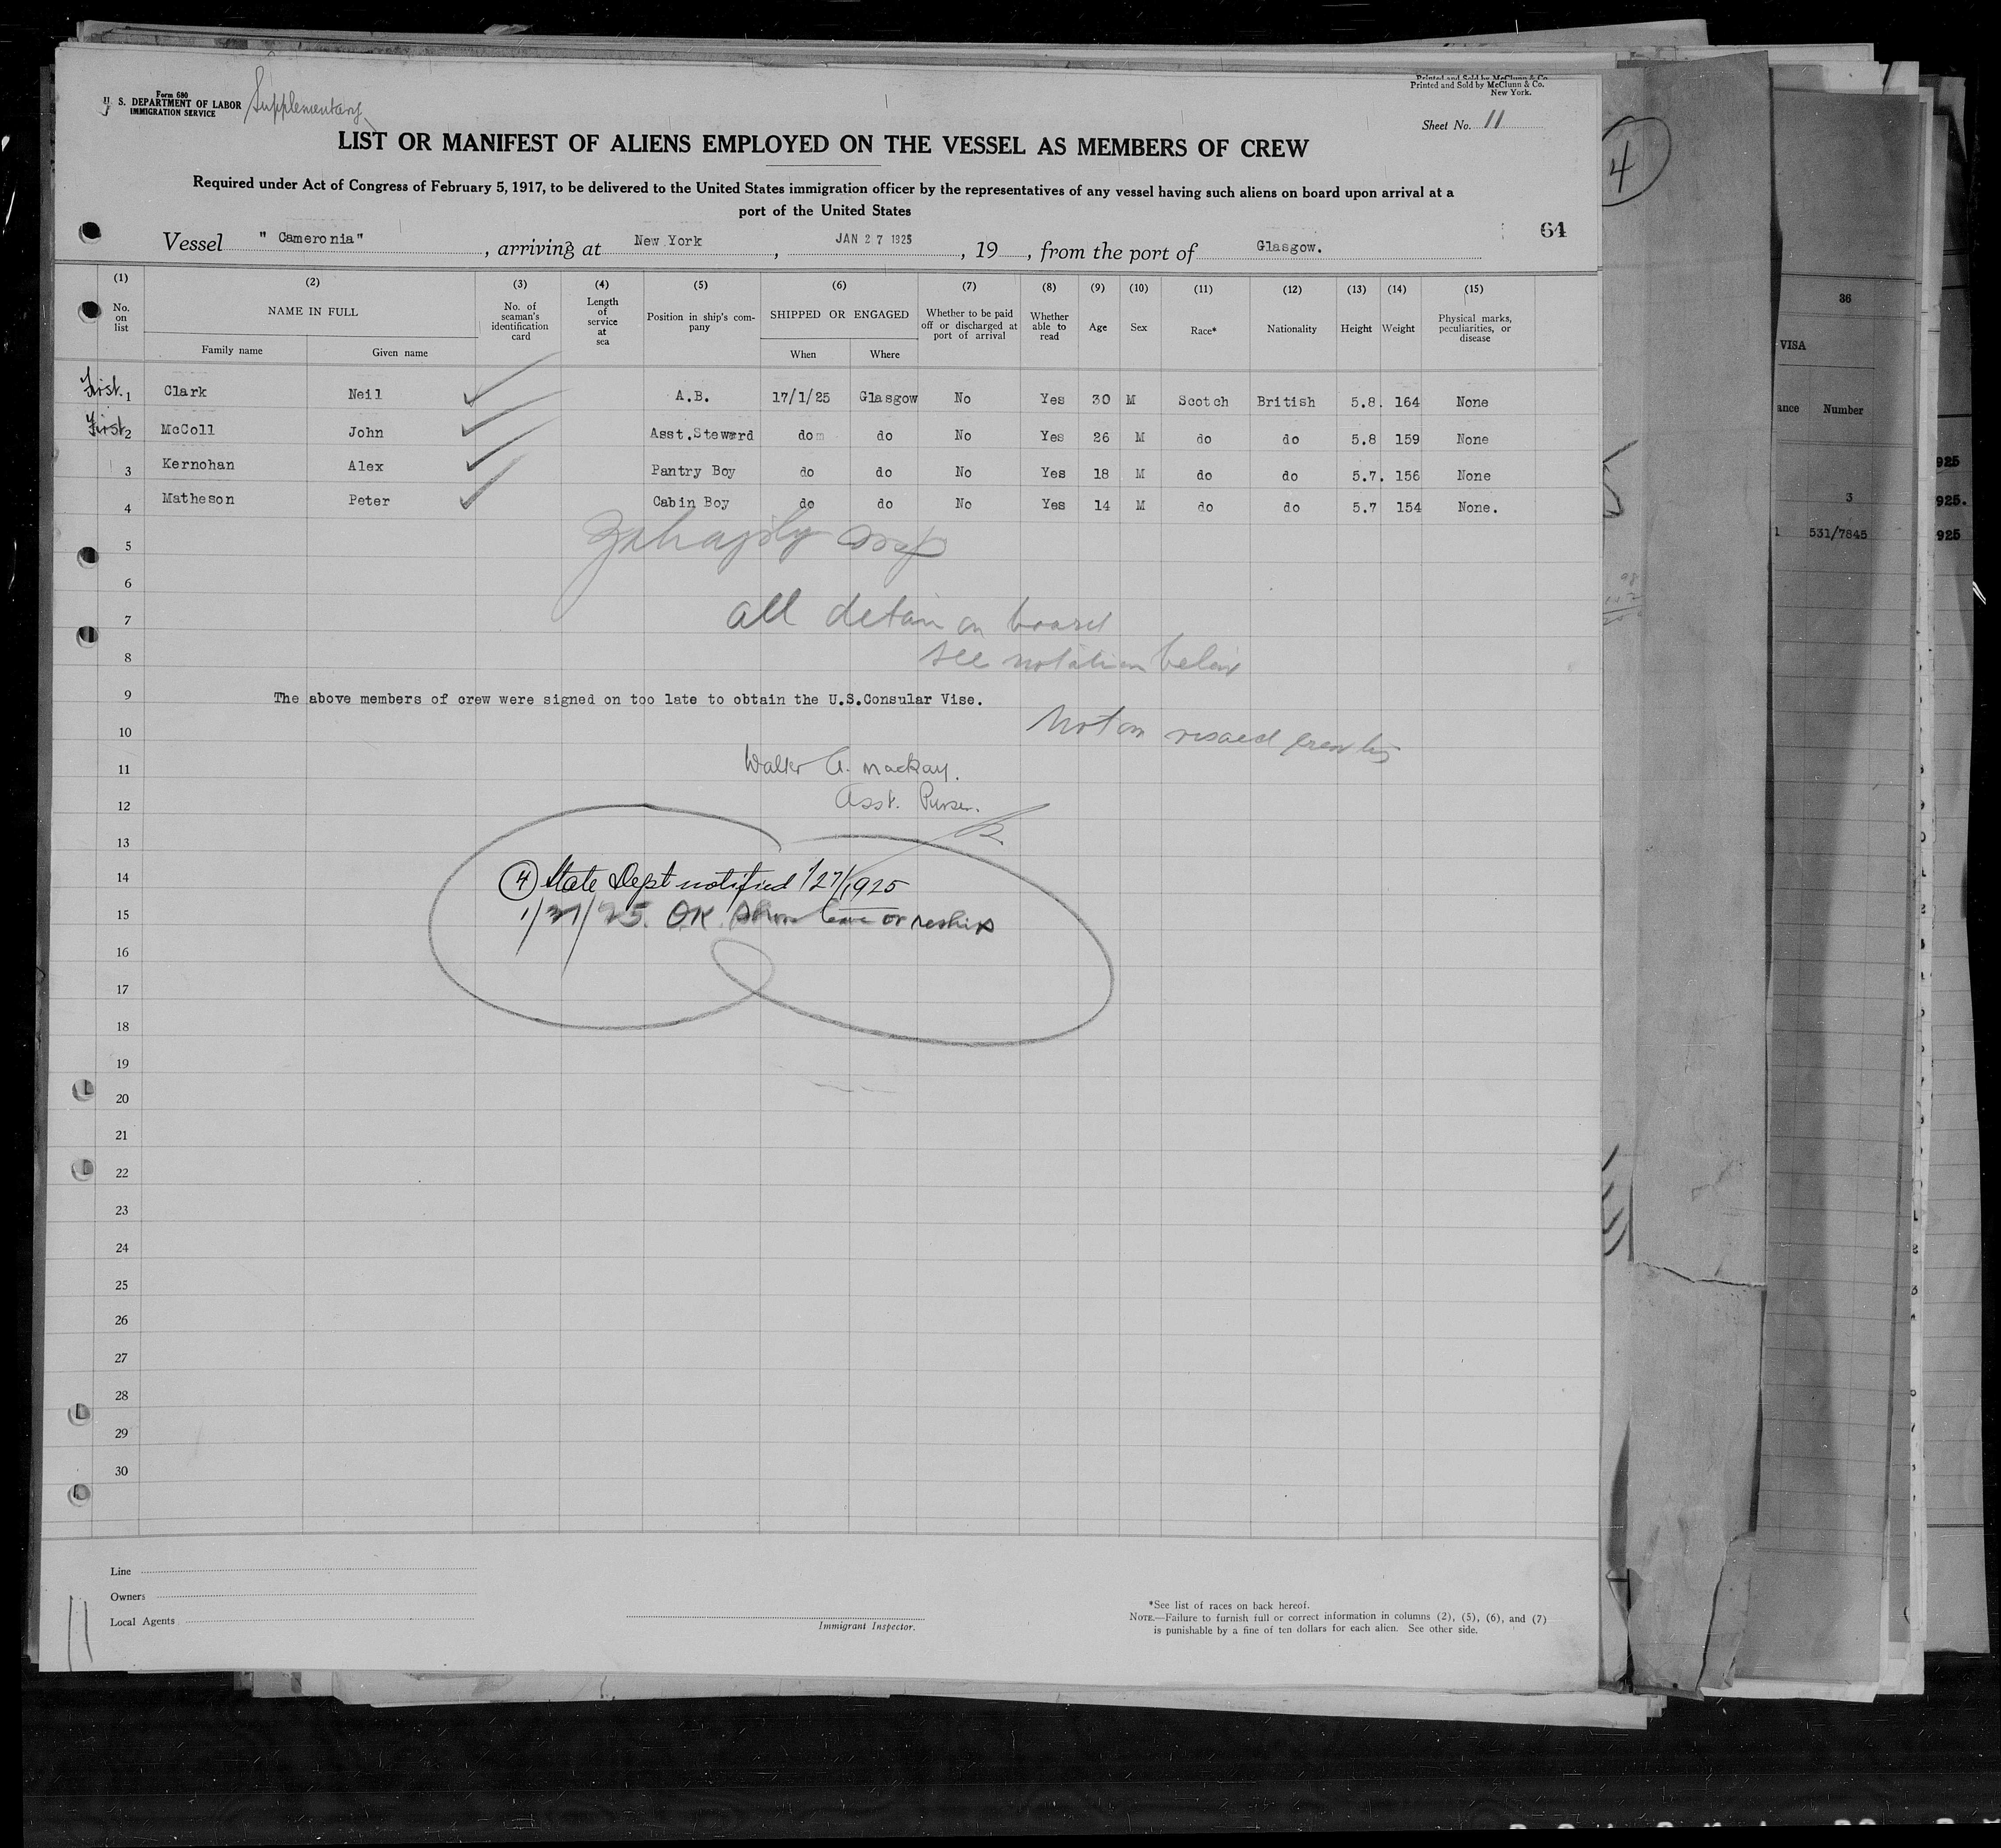 Form 680
U. S. DEPARTMENT OF LABOR
IMMIGRATION SERVICE
Supplementary
Printed and Sold by McClunn & Co.
Printed and Sold by McClunn & Co.
New York.
Sheet No. 11
4
LIST OR MANIFEST OF ALIENS EMPLOYED ON THE VESSEL AS MEMBERS OF CREW
Required under Act of Congress of February 5, 1917, to be delivered to the United States immigration officer by the representatives of any vessel having such aliens on board upon arrival at a
port of the United States
64
Vessel " Cameronia" , arriving at New York , JAN 27 1925 , 19 , from the port of Glasgow.
(1) (2) (3) (4) (5) (6) (7) (8) (9) (10) (11) (12) (13) (14) (15)
No. on list NAME IN FULL No. of seaman's identification card Length of service at sea Position in ship's company SHIPPED OR ENGAGED Whether to be paid off or discharged at port of arrival Whether able to read Age Sex Race* Nationality Height Weight Physical marks, peculiarities, or disease
Family name Given name When Where
First. 1 Clark Neil A.B. 17/1/25 Glasgow No Yes 30 M Scotch British 5.8. 164 None
First 2 McColl John Asst.Steward do do No Yes 26 M do do 5.8 159 None
3 Kernohan Alex Pantry Boy do do No Yes 18 M do do 5.7. 156 None
4 Matheson Peter Cabin Boy do do No Yes 14 M do do 5.7 154 None.
5
6
7 all detain on board
8 see notation below
9 The above members of crew were signed on too late to obtain the U.S.Consular Vise.
10 Not on visaed crew list
11 Walter G. Mackay.
12 Asst. Purser.
13
14 4 State Dept notified 1/27/1925
15 1/27/25. OK Shore leave or reship
16
17
18
19
20
21
22
23
24
25
26
27
28
29
30
Line
Owners
Local Agents
Immigrant Inspector.
*See list of races on back hereof.
NOTE.—Failure to furnish full or correct information in columns (2), (5), (6), and (7)
is punishable by a fine of ten dollars for each alien. See other side.
11
36
VISA
ance Number
3
1 531/7845
925
925.
925